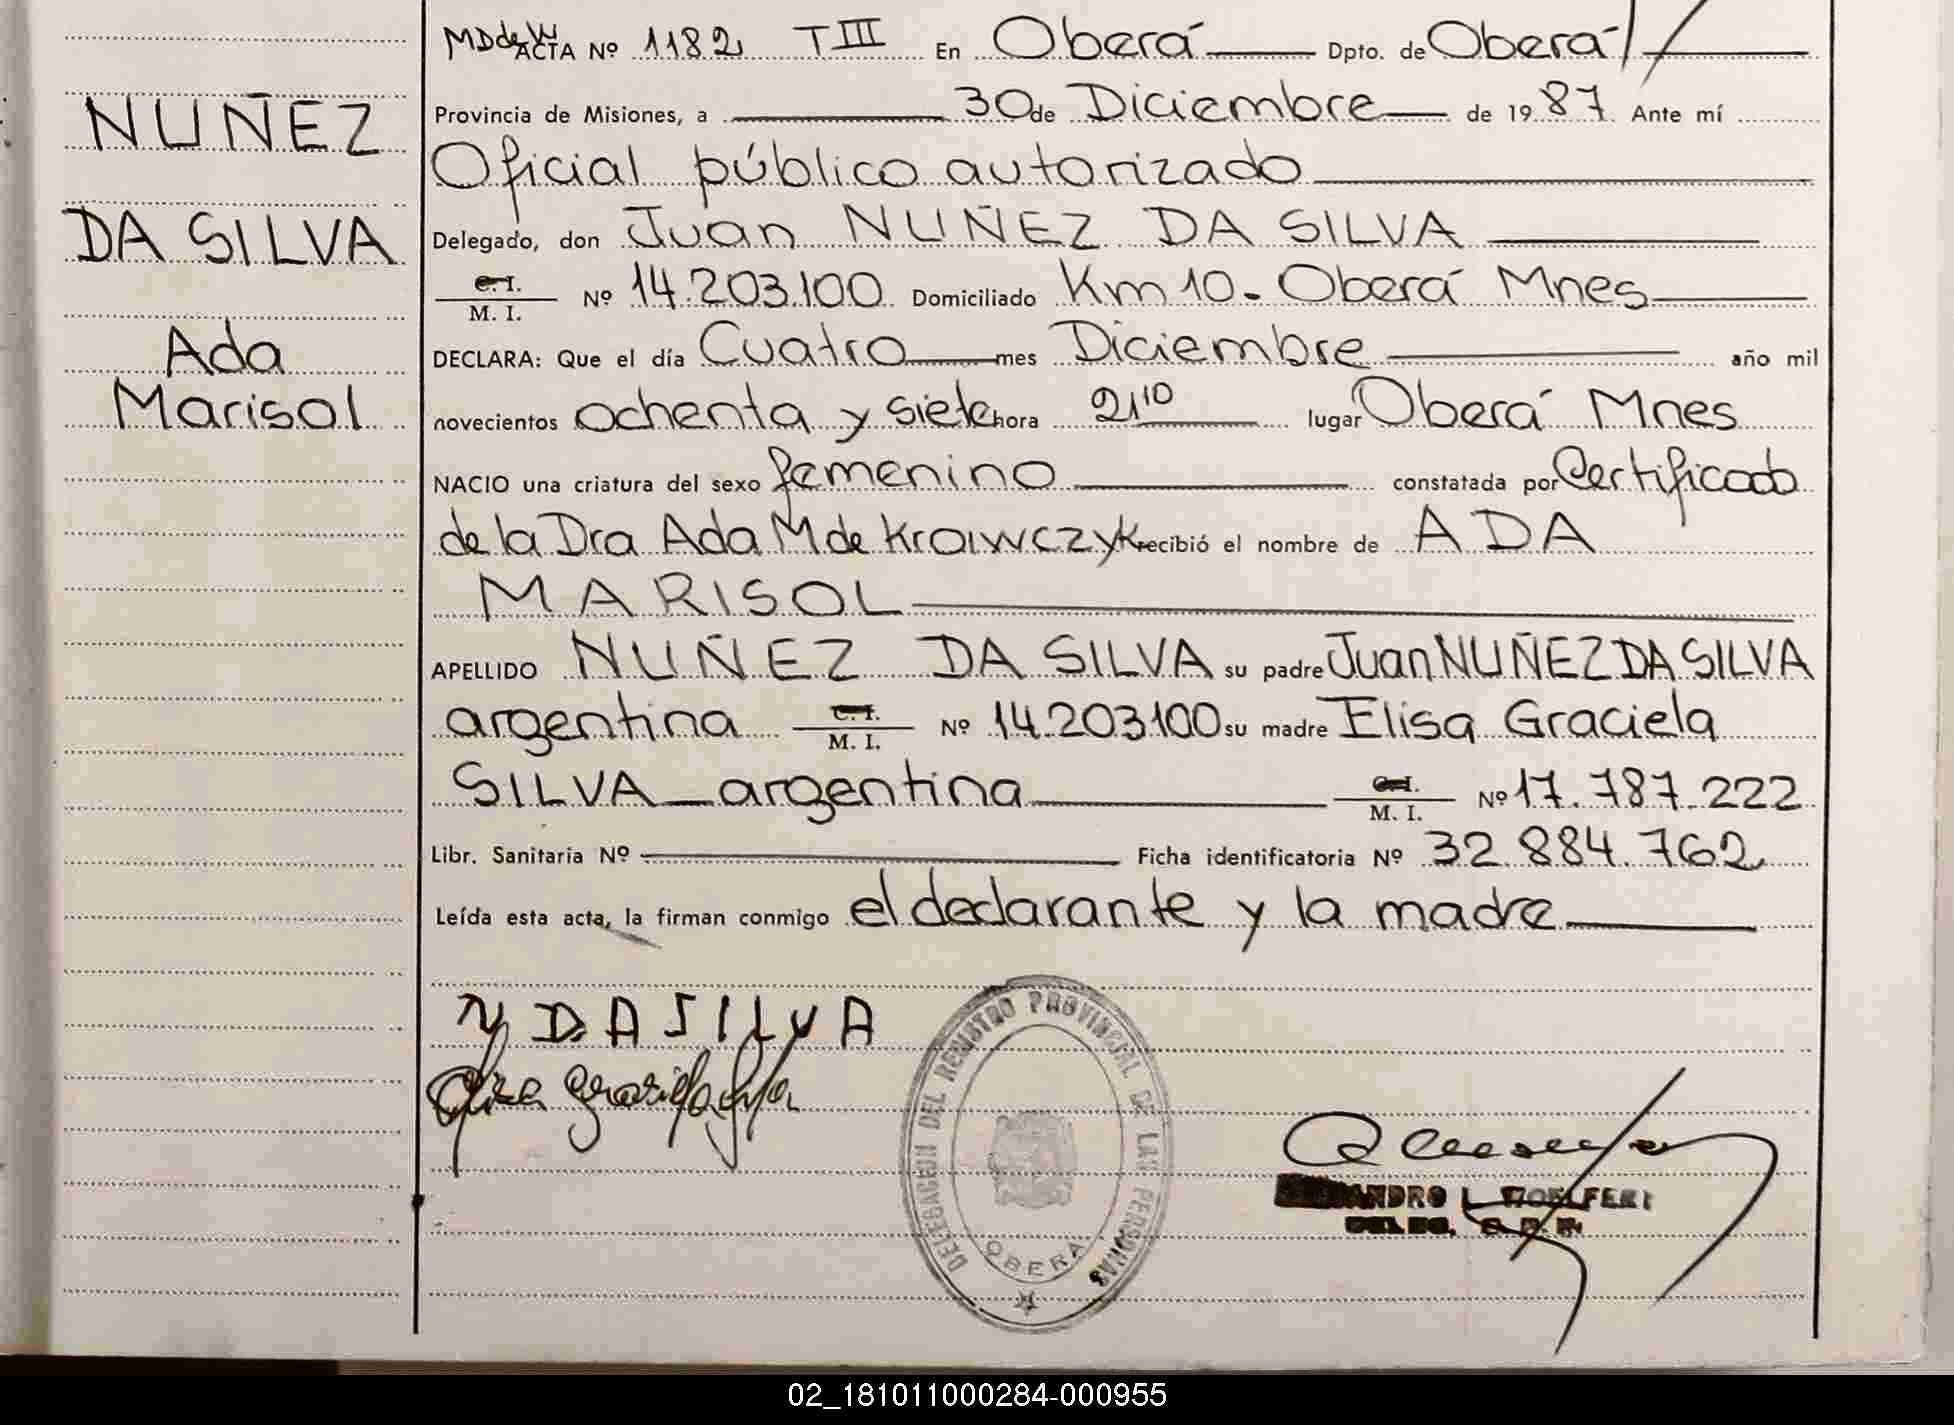 NUÑEZ
DA SILVA
Ada
Marisol
MDdeW ACTA Nº 1182 T III En Oberá Dpto. de Oberá
Provincia de Misiones, a 30 de Diciembre de 1987 Ante mí
Oficial público autorizado
Delegado, don Juan NUÑEZ DA SILVA
C. I.
M. I. Nº 14.203.100 Domiciliado Km 10 - Oberá Mnes
DECLARA: Que el día Cuatro mes Diciembre año mil
novecientos ochenta y siete hora 21 10 lugar Oberá Mnes
NACIO una criatura del sexo femenino constatada por Certificado
de la Dra Ada M de Krawczyk recibió el nombre de ADA
MARISOL
APELLIDO NUÑEZ DA SILVA su padre Juan NUÑEZ DA SILVA
argentina C. I.
M. I. Nº 14.203.100 su madre Elisa Graciela
SILVA argentina C. I.
M. I. Nº 17.787.222
Libr. Sanitaria Nº Ficha identificatoria Nº 32.884.762
Leída esta acta, la firman conmigo el declarante y la madre
N DA SILVA
Elisa Graciela Silva
DELEGACION DEL REGISTRO PROVINCIAL DE LAS PERSONAS
OBERA
02_181011000284-000955